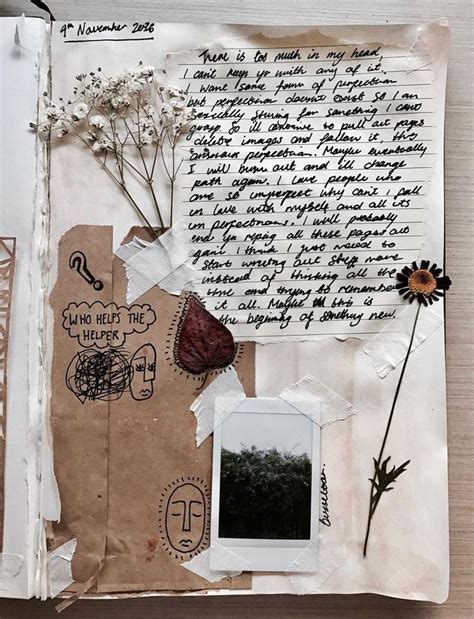 9th November 2016
There is too much in my head
I can't keep up with any of it
I want some form of perfection
but perfection doesn't exist so I am
striving for something I can't
So ill continue to pull out pages
delete images and follow it, this
perfection. Maybe eventually
I will burn out and ill change
path again. I love people who
are so imperfect why can't i fall
in love with myself and all its
I will probably
end up all these pages out
I think I just need to
start writing out stuff more
instead of thinking all the
time and trying to remember
it all. Maybe this is
the beginning of something new.
?
WHO HELPS THE
HELPER
Busselton.